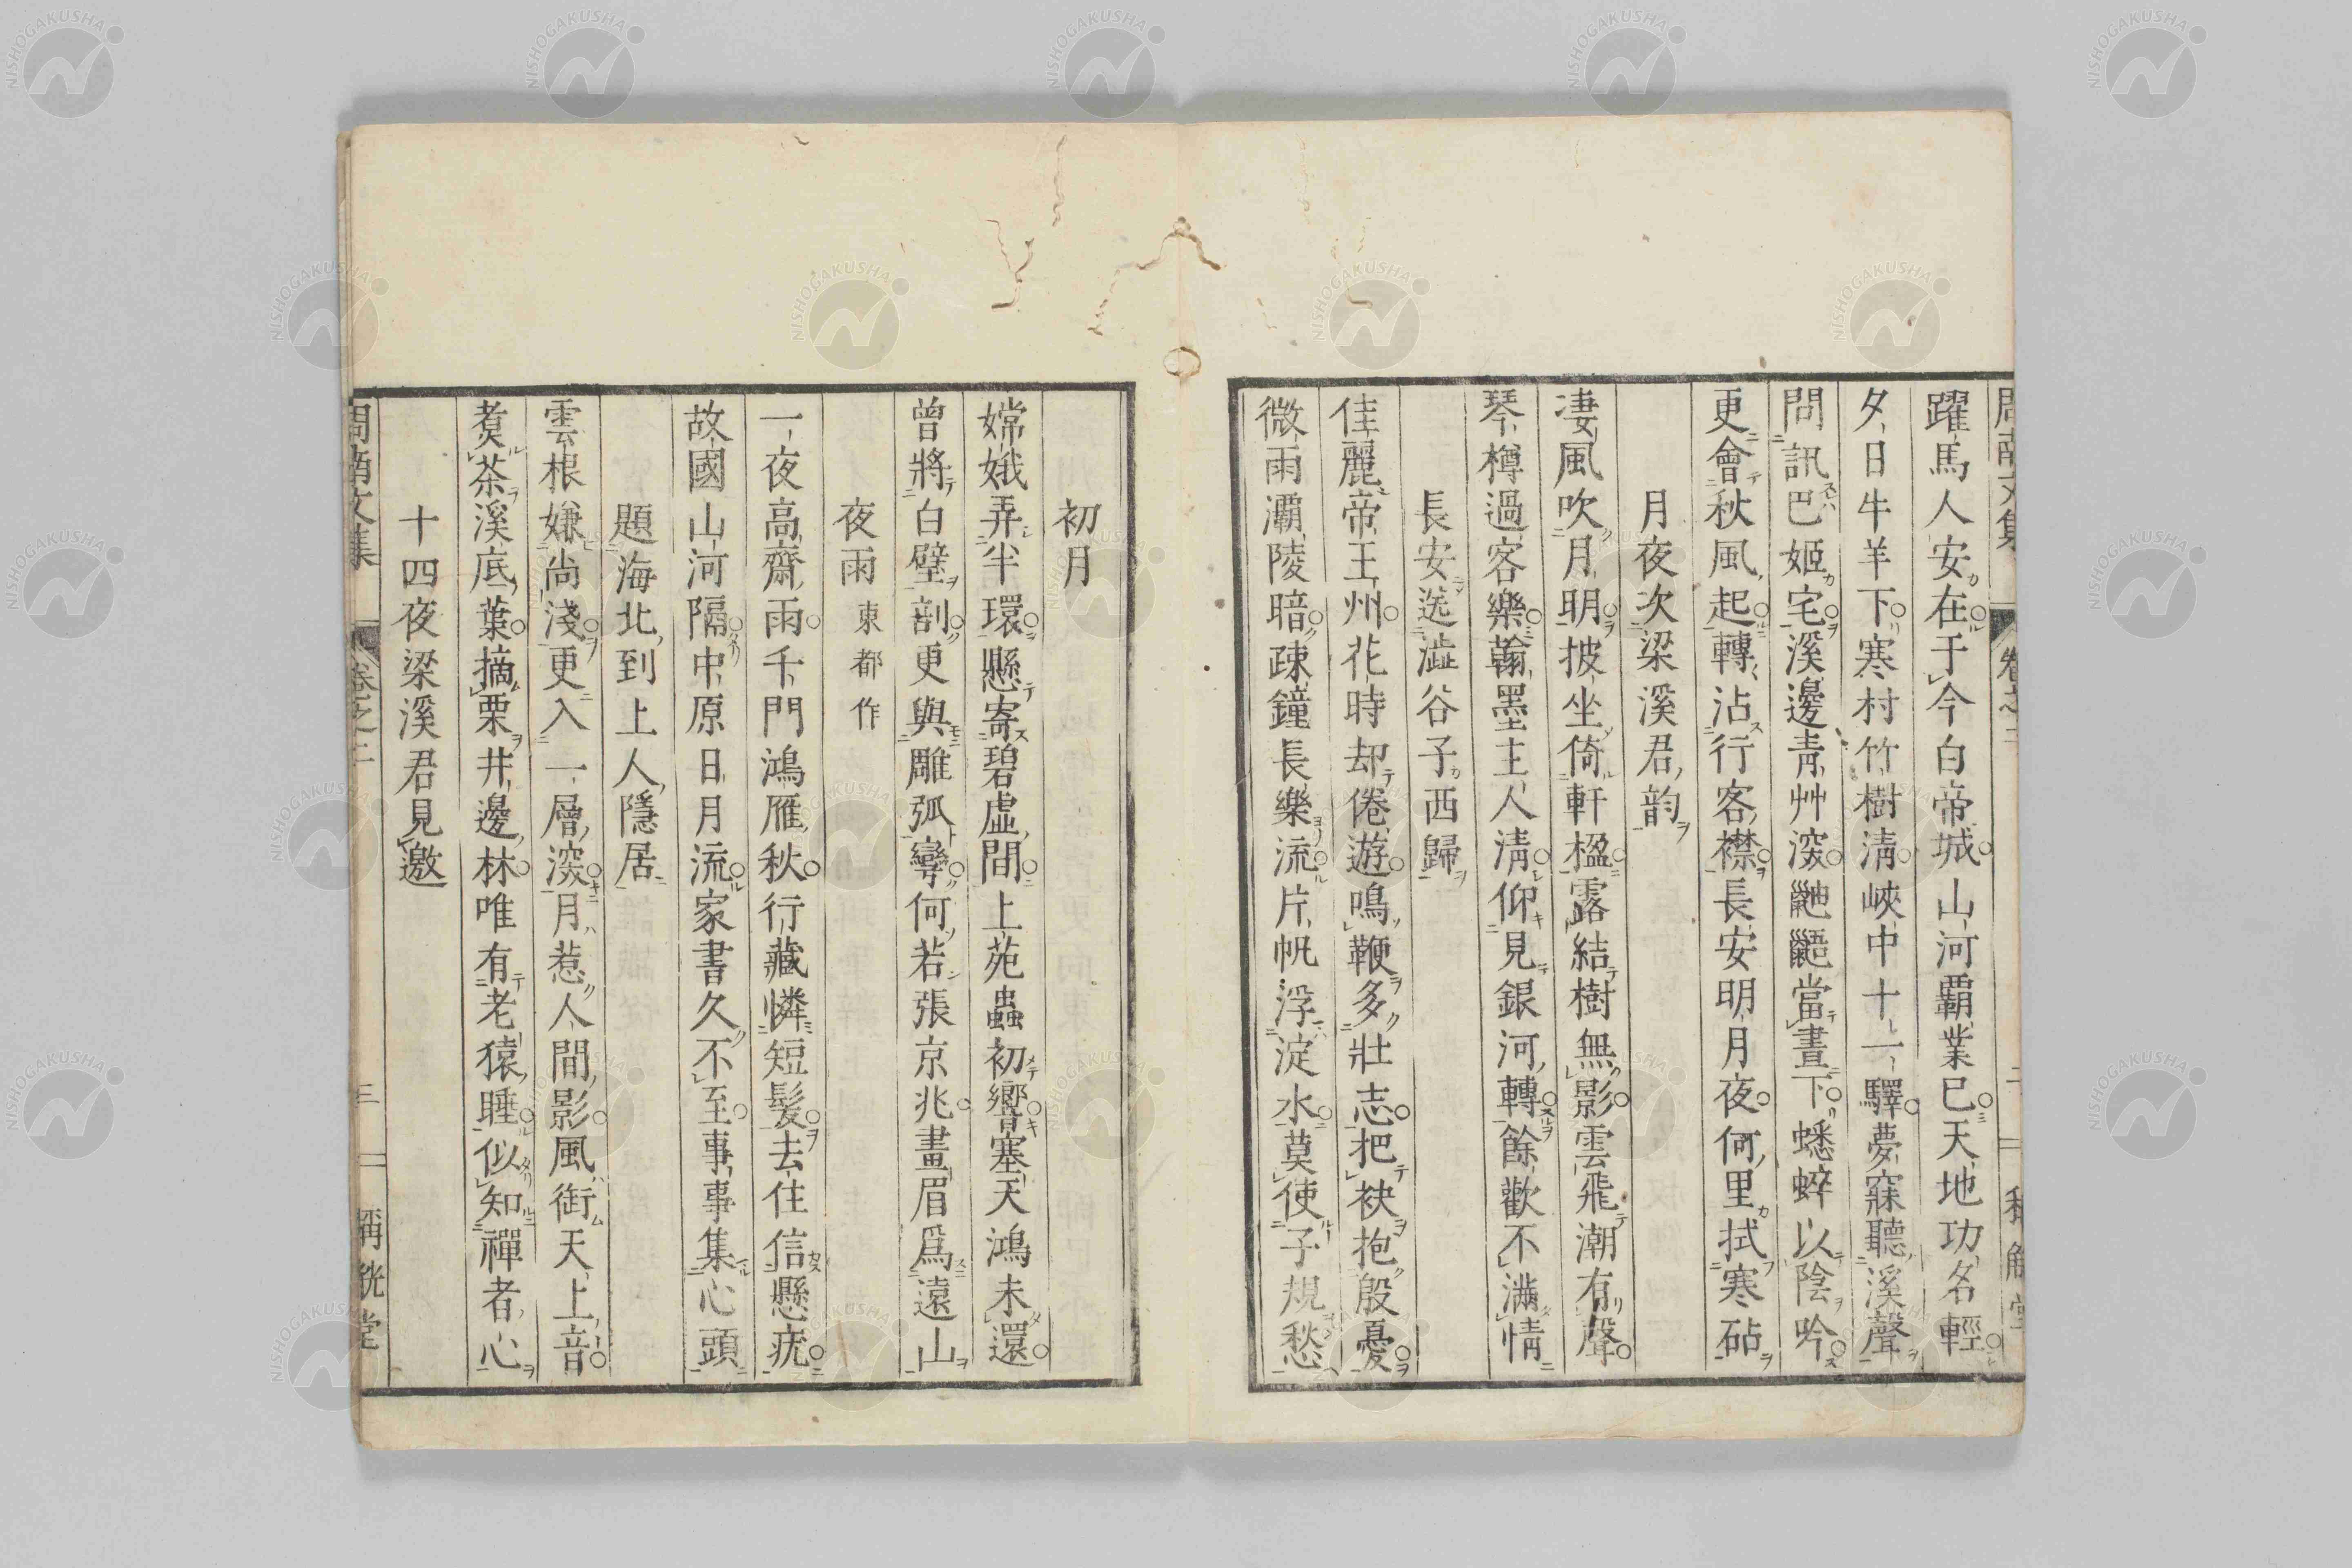 躍馬人安在于今白帝城山河覇業已天地功名輕
夕日牛羊下寒村竹樹清峽中十一驛夢寐聽溪聲
問訊巴姬宅溪邊青艸深鼪鼯當晝下蟋蟀以陰吟
更會秋風起轉沾行客襟長安明月夜何里拭寒砧
月夜次梁溪君韵
凄風吹月明披坐倚軒楹露結樹無影雲飛潮有聲
琴樽過客樂翰墨主人清仰見銀河轉餘歡不滿情
長安送澁谷子西歸
佳麗帝王州花時却倦遊鳴鞭多壯志把袂抱殷憂
微雨灞陵暗疎鐘長樂流片帆浮淀水莫使子規愁
初月
嫦娥弄半環懸寄碧虛間上苑蟲初響塞天鴻未還
曾將白璧剖更與雕弧彎何若張京兆畫眉爲遠山
夜雨 東都作
一夜高齋雨千門鴻雁秋行藏憐短髮去住信懸疣
故國山河隔中原日月流家書久不至事事集心頭
題海北到上人隱居
雲根嫌尚淺更入一層深月惹人間影風銜天上音
煑茶溪底葉摘栗井邊林唯有老猿睡似知禪者心
十四夜梁溪君見邀
周南文集 卷之二 三 稱觥堂